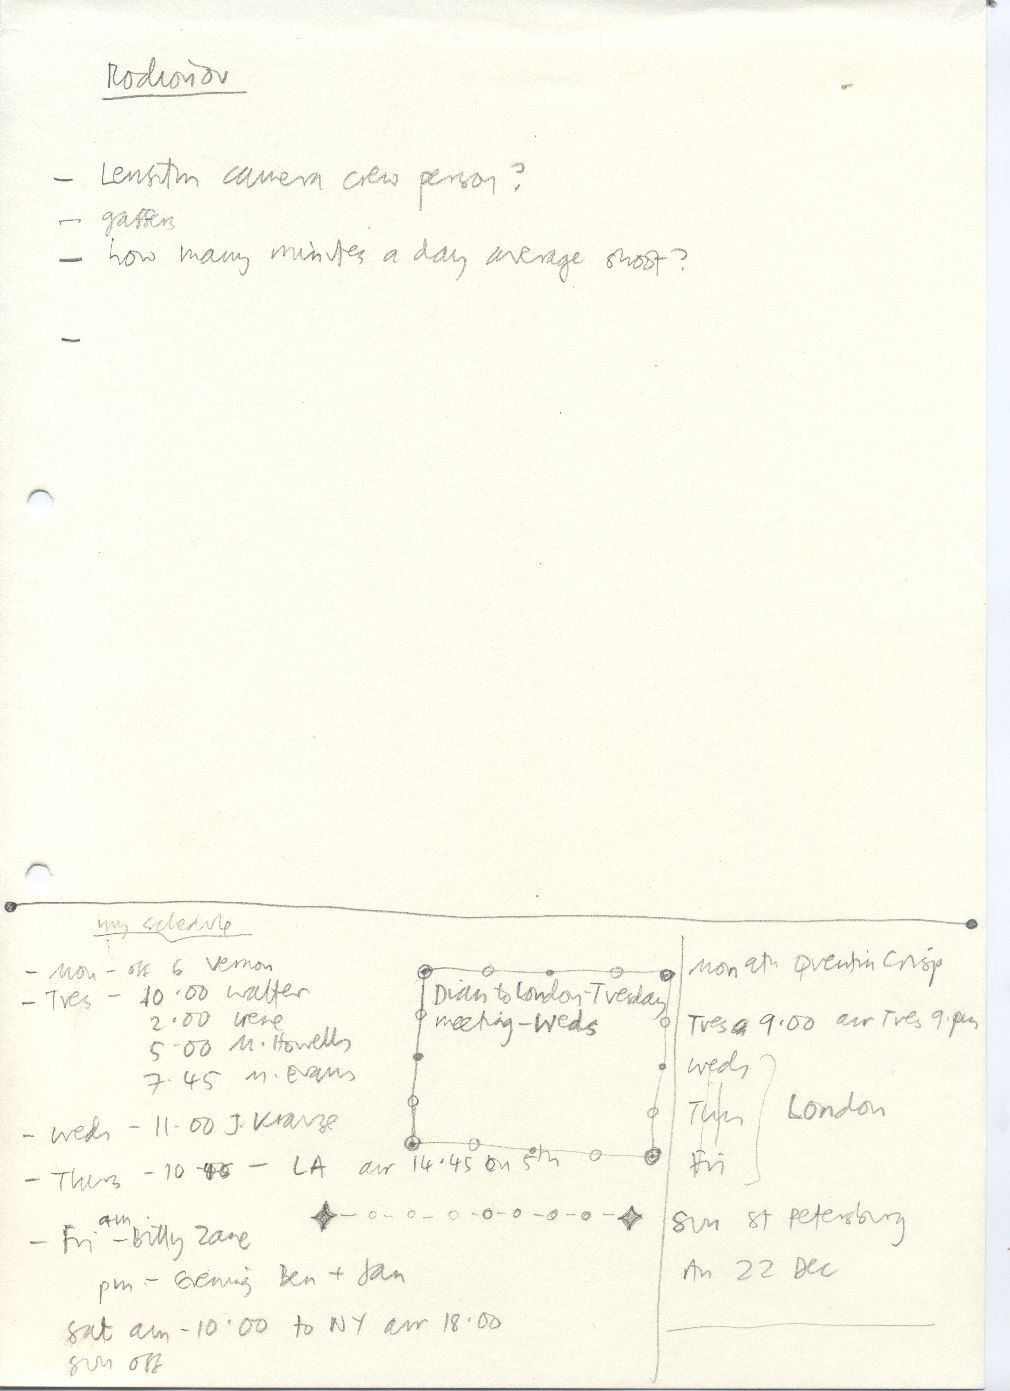 Rodionov
- Lenfilm camera crew person?
- gaffers
- how many minutes a day average shoot?
-
my schedule
- Mon - off 6 Vernon
- Tues - 10.00 Walter
2.00 Irene
5.00 M. Howells
7.45 M. Evans
- Weds - 11.00 J. Krause
- Thurs - 10 - LA arr 14.45 on 5th
- Fri am - Billy Zane
pm - Evening Ben + Jan
Sat am - 10.00 to NY arr 18.00
Sun off
to London - Tuesday
meeting - Weds
Mon 9th Quentin Crisp
Tues 9.00 arr Tues 9.pm
Weds
Thurs
Fri
London
Sun St Petersburg
22 Dec